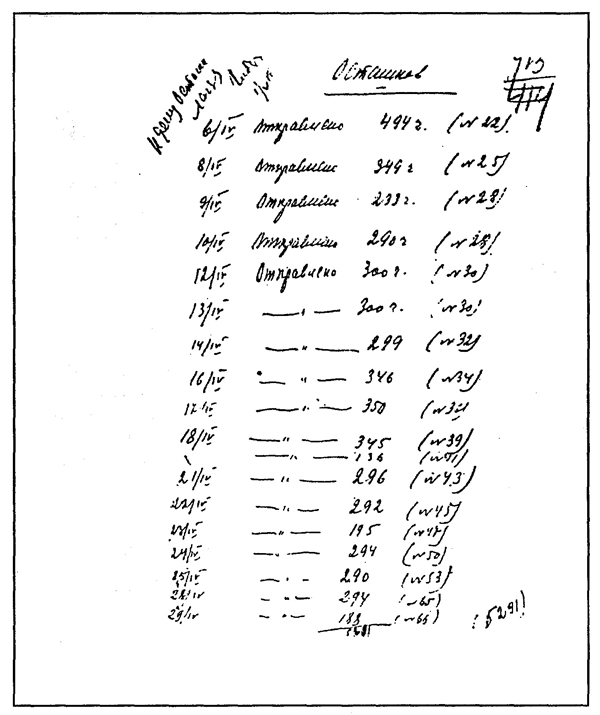 Осташков
6/IV Отправлено 494 г. (№ 22)
8/IV Отправлено 349 г (№ 25)
9/IV Отправлено 233 г. (№ 28)
10/IV Отправлено 290 г (№ 28)
12/IV Отправлено 300 г. (№ 30)
13/IV — " — 300 г. (№ 30)
14/IV — " — 299 (№ 32)
16/IV — " — 346 (№ 34)
17/IV — " — 350
18/IV — " — 345 (№ 39)
— " — 136
21/IV — " — 296 (№ 43)
22/IV — " — 292 (№ 45)
23/IV — " — 195
24/IV — " — 294 (№ 50)
25/IV — " — 290 (№ 53)
28/IV — " — 294 (№ 65)
29/IV — " — 188 (№ 66)
(5291)